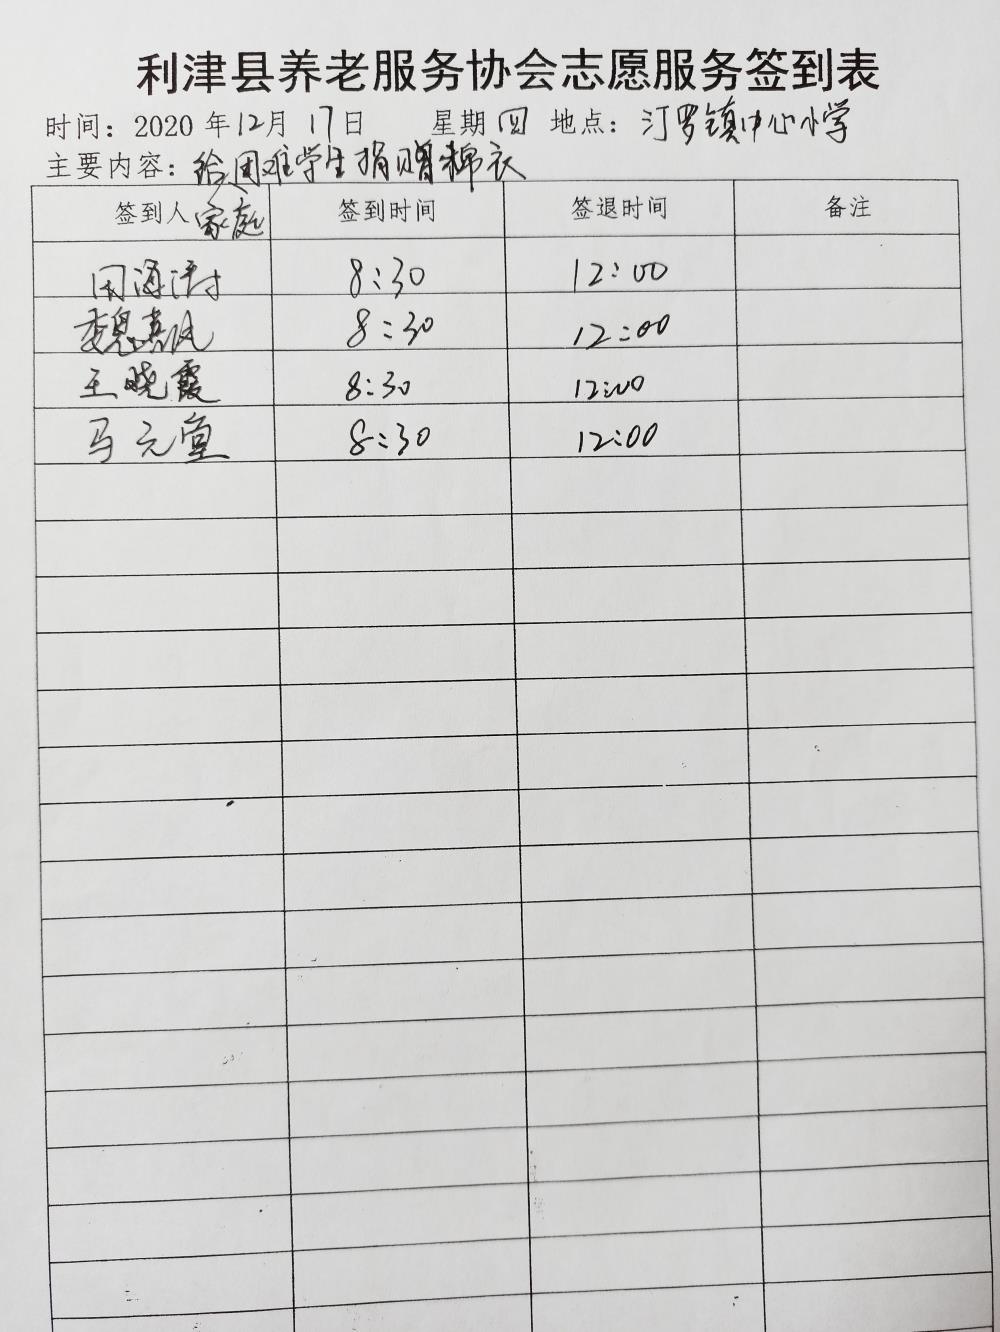 利津县养老服务协会志愿服务签到表
时间：2020年12月17日 星期四 地点：汀罗镇中心小学
主要内容：给困难学生捐赠棉衣
家庭
签到人 签到时间 签退时间 备注
8:30 12:00
魏 8:30 12:00
王晓霞 8:30 12:00
马元宝 8:30 12:00